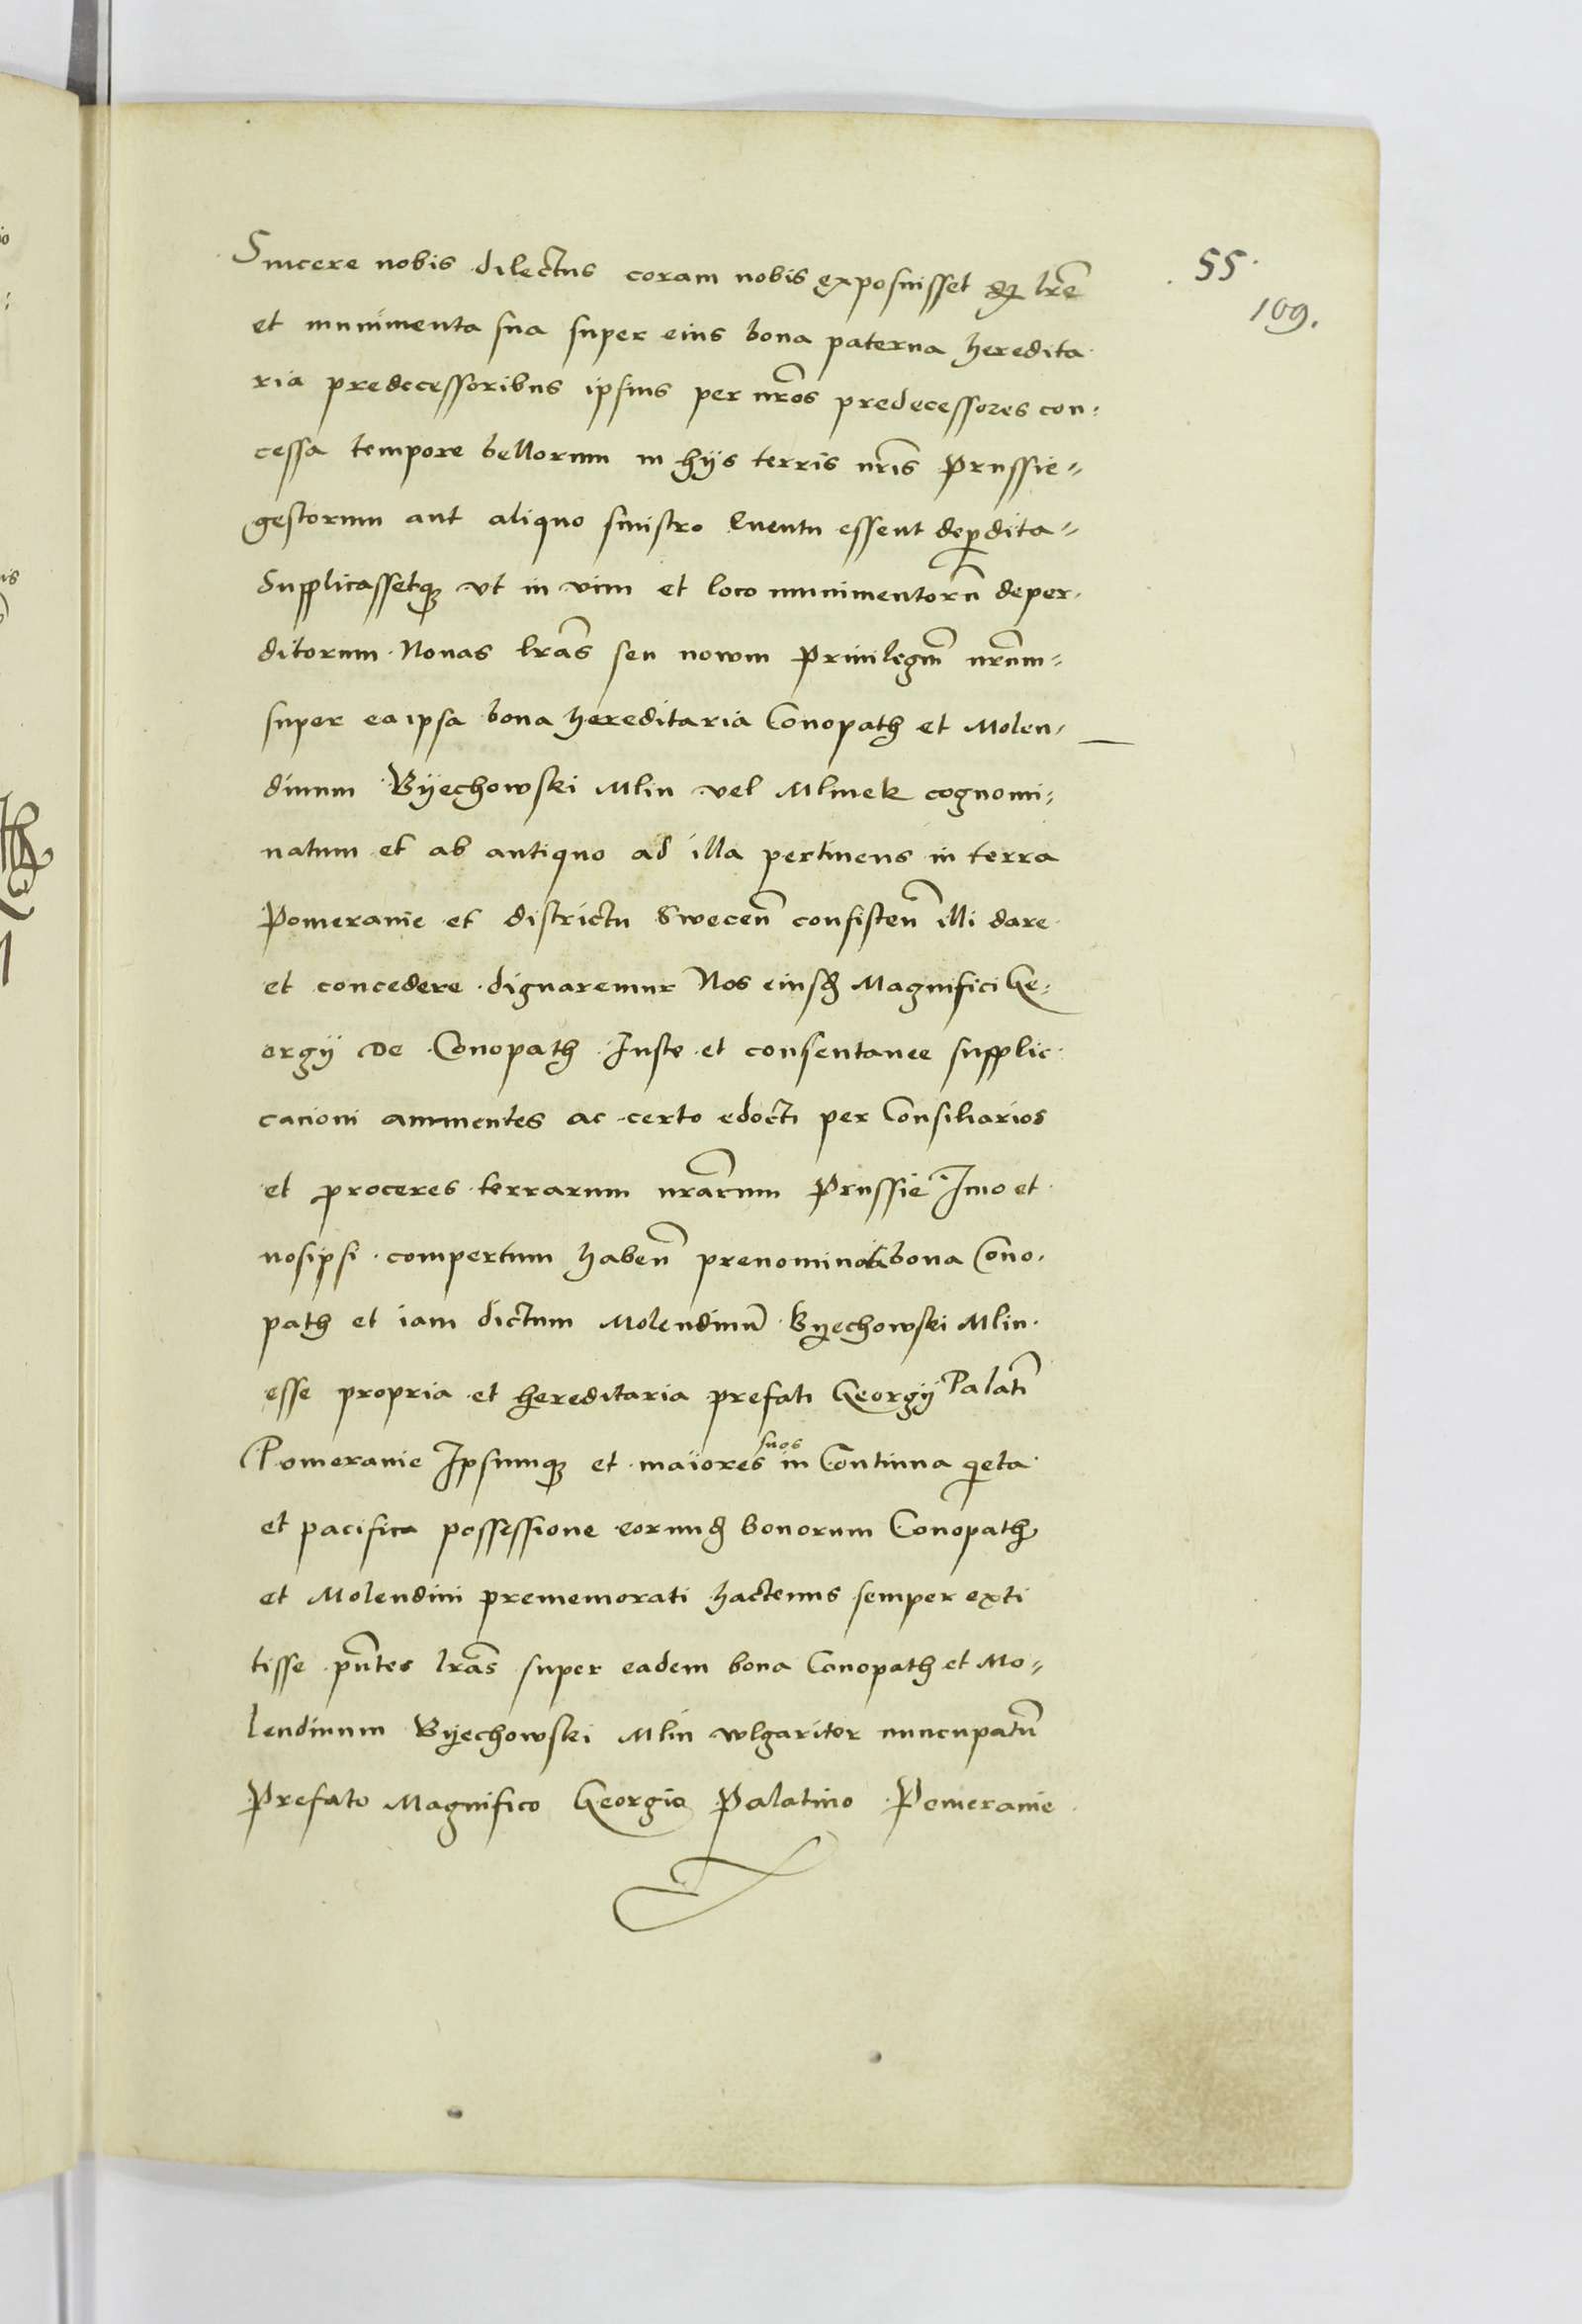 55.
109.
Sincere nobis dilectus coram nobis exposuisset qz lrē
et munimenta sua super eius bona paterna heredita
ria predecessoribus ipsius per nrōs predecessores con:
cessa tempore bellorum in hijs terris nrīs Prussie
gestorum aut aliquo sinistro Euentu essent deperdita
Supplicassetqz vt in vim et loco munimentorū deper
ditorum Nouas lrās seu nowm Priuilegīm nrūm
super ea ipsa bona hereditaria Conopath et Molen
dinum Byechowski Mlin vel Mlinek cognomi:
natum et ab antiquo ad illa pertinens in terra
Pomeranie et districtu Swecen̄ consisten̄ illi dare
et concedere dignaremur Nos eiusd Magnifici Ge:
orgij De Conopath Iuste et consentanee supplic
cacioni annuentes ac certo edocti per Consiliarios
et proceres terrarum nrārum Prussie Imo et
nosipsi compertum haben̄ prenominata bona Cono
path et iam dictum Molendinū Byechowski Mlin
esse propria et hereditaria prefati Georgij Palatī
Pomeranie Ipsumqz et maiores suos in Continua qieta
et pacifica possessione eorund bonorum Conopath
et Molendini prememorati hactenus semper exti
tisse pn̄tes lrās super eadem bona Conopath et Mo
lendinum Byechowski Mlin wlgariter nuncupatū
Prefato Magnifico Georgio Palatino Pomeranie